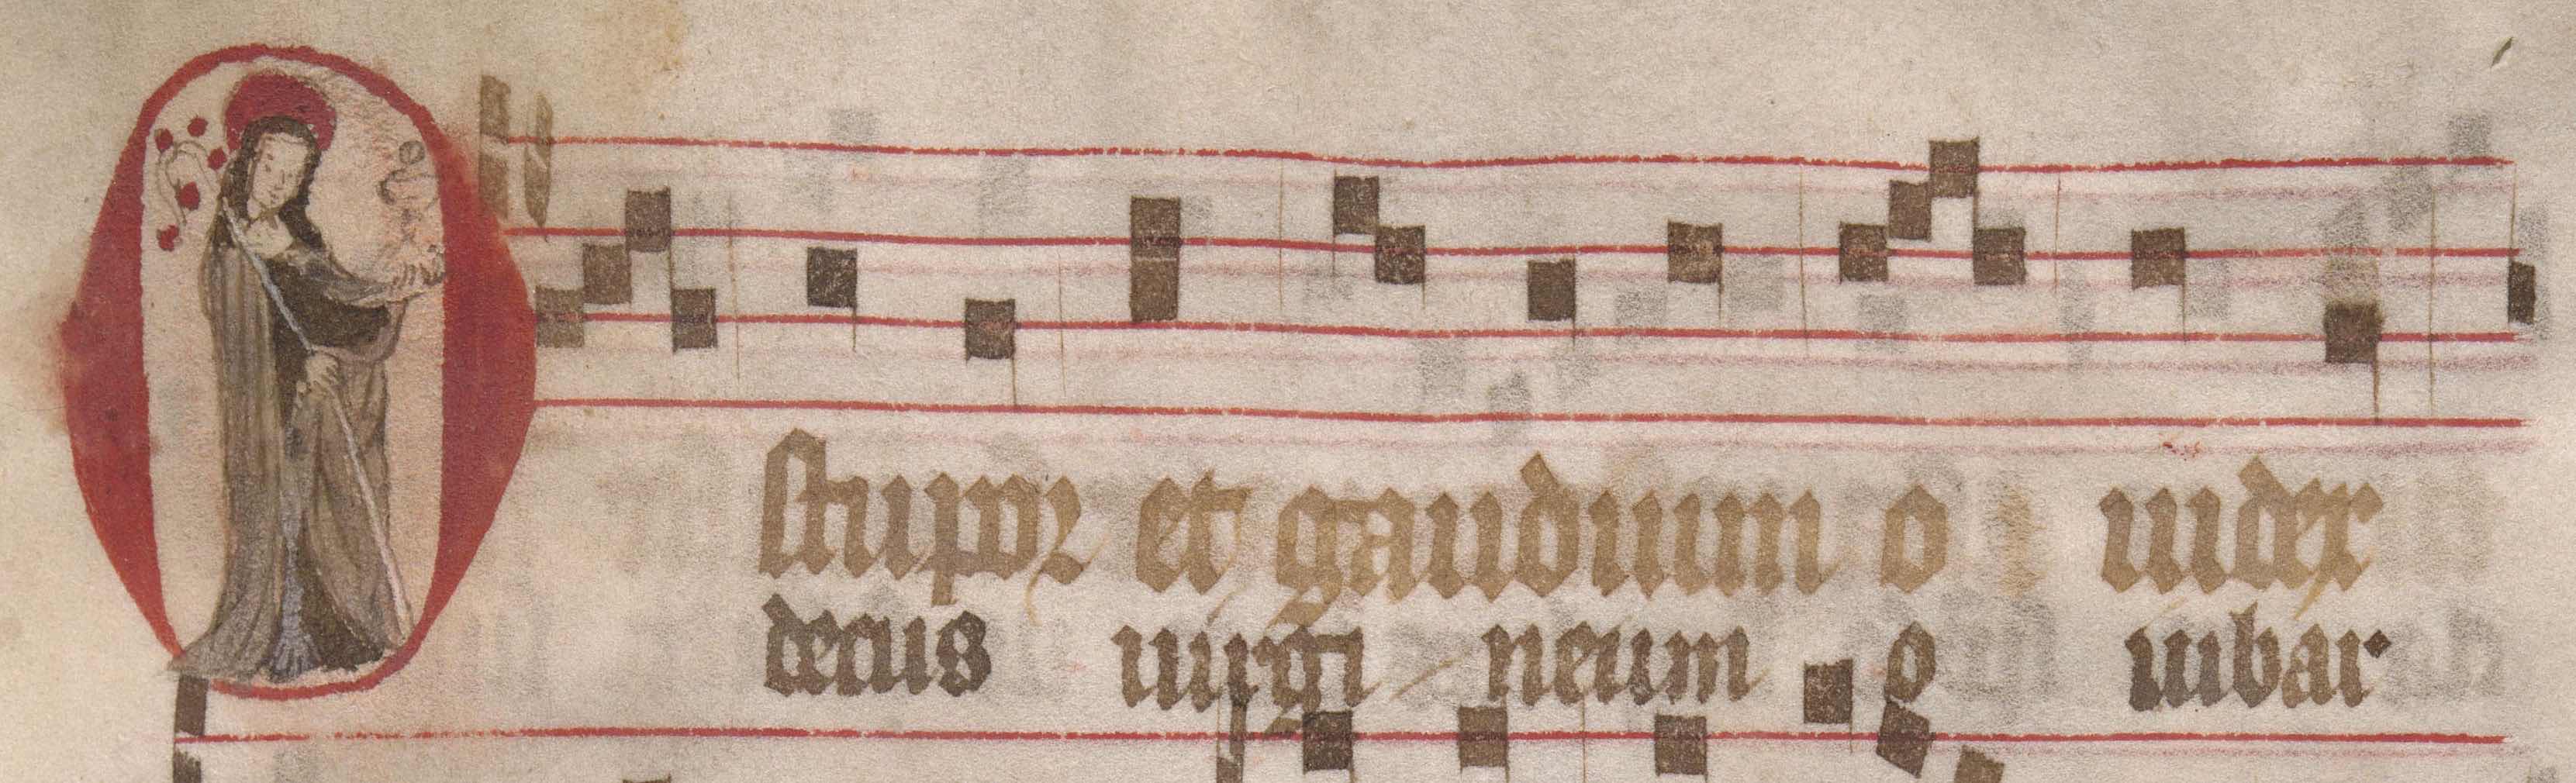 O stupor et gaudium o iudex
decus uirgi neum o iubar